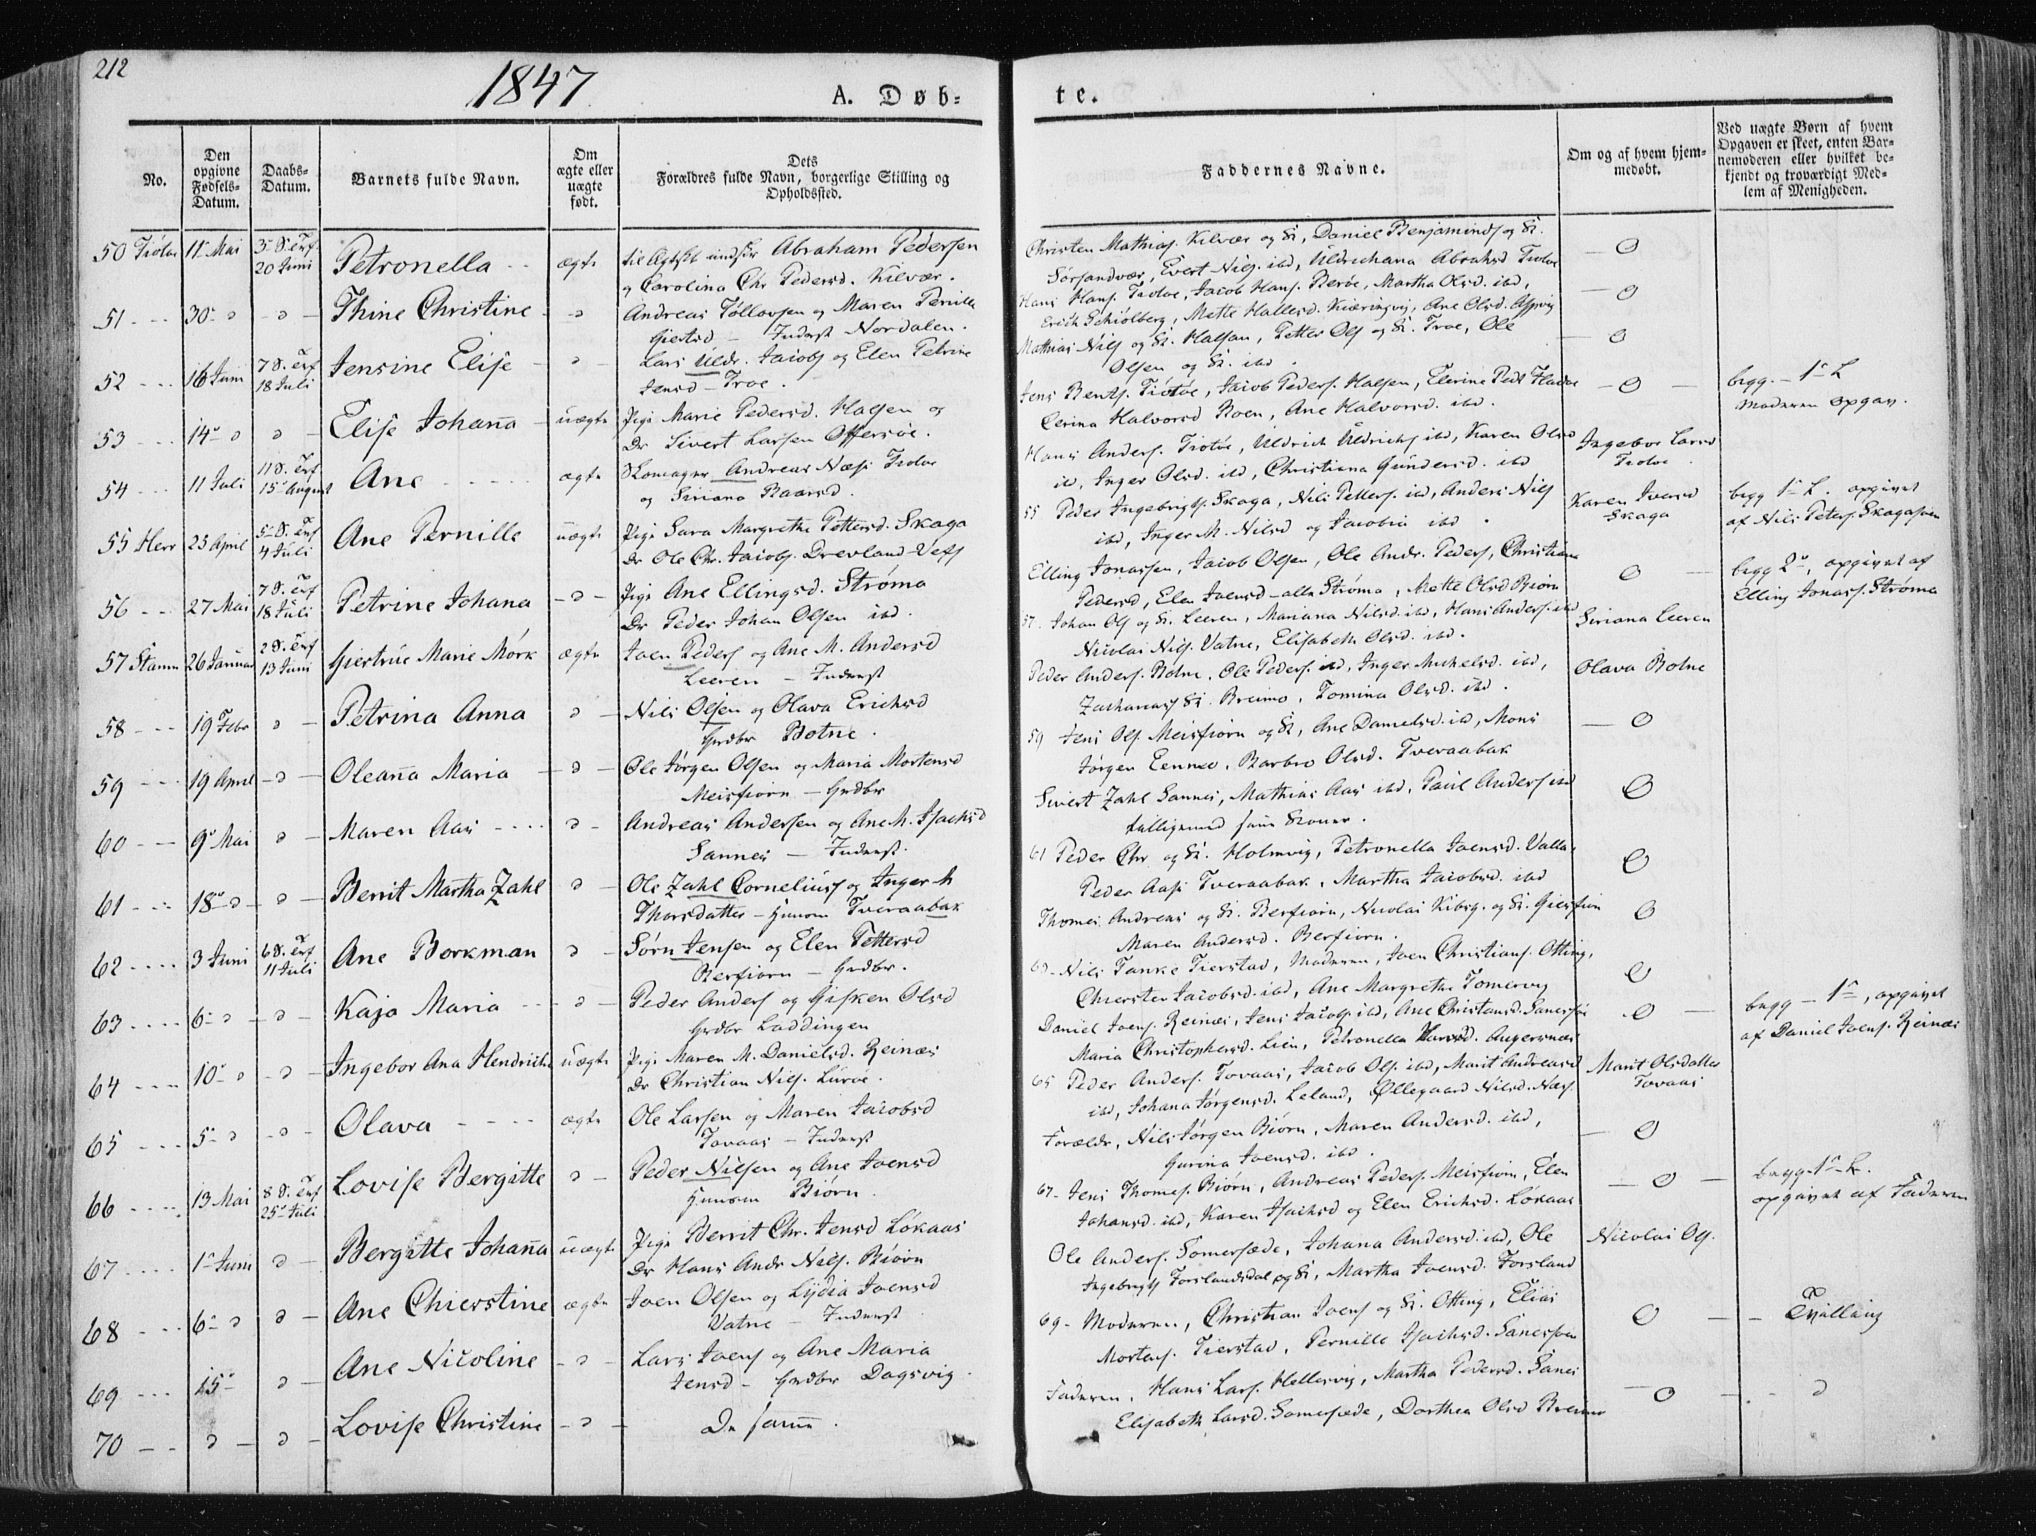 212
1847
A. Døb-
te.
No.
Den
opgivne
Fødsels-
Datum.
Daabs-
Datum.
Barnets fulde Navn.
Om
ægte eller
uægte
født.
Dets
Forældres fulde Navn, borgerlige Stilling og
Opholdssted.
Faddernes Navne.
Om og af hvem hjem-
medøbt.
Ved uægte Børn af hvem
Opgaven er skeet, enten Bar-
nemoderen eller hvilket be-
kjendt og troværdigt Med-
lem af Menigheden.
50 Tiøtøe 11te Mai 3 S. Trf
20 Juni Petronella ægte Abraham Pedersen
og Carolina Chr Pedersd. Kilvær.
Christen Mathias. Kilvær og K., Daniel Benjamins og K.
Sørsandvær, Evert Nils. ibd, Uldrichana Abrahsd Tiøtøe
51 30 Thine Christine Andreas Tollovsen og Maren Pernille
Giertsd - Inderst Nordalen.
Hans Hans. Tiøtøe, Jacob Hans. Berøe, Martha Olsd. ibd,
Erich Schiølberg, Mette Hallesd. Kiæringvig, Ane Olsd.
52 16 Juni 7 S. Trf
18 Juli Jensine Elise Lars Uldr. Jacobs og Elen Petrine
Jensd - Troe.
Mathias Nils og K. Halsan, Petter Ols og K. Troe, Ole
Olsen og K. ibd
53 14 Elise Johanna uægte Pige Marie Pedersd. Halsen og
Dr Sivert Larsen Offersøe.
Jens Bents. Tiøtøe, Jacob Peders. Halsen, Elerine
Halvorsd Boen, Ane Halvorsd. ibd.
begg. - 1te L
Moderen opgav.
54 11 Juli 11 S. Trf
15 August Ane ægte Skomager Andreas Næss Tiøtøe
og Siriana Baarsd.
Hans Anders. Tiøtøe, Uldrich Uldrichs ibd, Karen Olsd
ibd, Inger Olsd. ibd, Christiana Gundersd. ibd
Ingebor Larsd
Tiøtøe
55 Herr 25 April 5 S. Trf
4 Juli Ane Pernille uægte Pige Sara Margrethe Pettersd. Skaga
Dr Ole Chr. Jacobs. Drevland - Vefs
55 Peder Ingebrigts Skaga, Nils Petters. ibd, Anders Nils
ibd, Inger M. Nilsd og Jacobia ibd.
Karen Iversd
Skaga
begg 1te L. opgivet
af Nils Peters. Skagasøen
56 27 Mai 7 S. Trf
18 Juli Petrine Johana Pige Ane Ellingsd. Strøma
Dr Peder Johan Olsen ibd.
Elling Jonassen, Jacob Olsen, Ole Andr. Peders, Christiana
Pedersd, Elen Joensd - alle Strøma, Mette Olsd Biørn
begg 2, opgivet af
Elling Jonass. Strøma
57 Stamn 26 Januar 2 S. Trf
13 Juni Giertrue Marie Mörk ægte Joen Peders og Ane M. Andersd
Leeren - Inderst
57. Johan Ols og K. Leeren, Mariana Nilsd. ibd, Hans Anders. ibd
Nicolai Nils. Vatne, Elisabeth Olsd. ibd.
Siriana Leeren
58 19 Febr Petrina Anna Nils Olsen og Olava Erichsd
Grdbr Botne.
Peder Anders. Botne, Ole Peders. ibd, Inger Michelsd. ibd,
Zacharias K. Breimo, Tomina Olsd. ibd.
Olava Botne
59 19 April Oleana Maria Ole Jørgen Olsen og Maria Mortensd
Meisfiorn - Grdbr
59 Jens Ols Meisfiorn og K, Ane Danielsd. ibd, Mons
Jørgen, Barbro Olsd. Tveraabak
60 9 Mai Maren Aas Andreas Andersen og Ane M. Isachsd
Sannes - Inderst.
Sivert Zahl Sannes, Mathias Aas ibd, Paul Anders ibd
61 18 Berrit Martha Zahl Ole Zahl Cornelius og Inger M
Thorsdatter - Tveraabak
61 Peder Chr og K. Holmvig, Petronella Joensd. Valla,
Peder Aas. Tveraabak, Martha Jacobsd. ibd
62 3 Juni 6 S. Trf
11 Juli Ane Borkman Sørn Jensen og Elen Pettersd
Berfiorn - Grdbr.
Thomes Andreas og K. Berfiorn, Nicolai og K.
Maren Andersd. Berfiorn.
63 6 Kaja Maria Peder Anders og Gisken Olsd
Grdbr Laddingen
63 - Nils Tanke Tierstad, Moderen, Joen Christians. Otting,
Chiersten Jacobsd. ibd, Ane Margrethe
64 10 Ingebor Ana Hendriche uægte Pige Maren M. Danielsd. Reinæs
Dr Christian Nils. Lurøe.
Daniel Joens. Reinæs, Jens Jacobs. ibd, Ane
Maria Christophersd. Lien, Petronella Angersnes
begg - 1te, opgivet
af Daniel Joens. Reinæs
65 5 Olava ægte Ole Larsen og Maren Jacobsd
Tovaas - Inderst
65 Peder Anders. Tovaas, Jacob Ols. ibd, Marit Andreasd
ibd, Johana Jørgensd. Leland, Øllegaard Nilsd. Næs.
Marit Olsdatter
Tovaas
66 13 Mai 8 S. Trf
25 Juli Lovise Bergitte Peder Nilsen og Ane Joensd
Biørn.
Forældr, Nils Jørgen Biørn, Maren Andersd. ibd,
Gurina Joensd. ibd.
67 1 Juni Bergitte Johanna uægte Pige Berrit Chr. Jensd Løkaas
Dr Hans Andr Nils. Biørn
67 - Jens Thomes. Biørn, Andreas Peders. Meisfiorn, Elen
Johansd. ibd, Karen Isachsd og Elen Erichsd. Løkaas
begg. 1te L.
opgivet af Faderen
68 6 Ane Chierstine ægte Joen Olsen og Lydia Joensd
Vatne - Inderst
Ole Anders. Somersæde, Johana Andersd. ibd, Ole
Ingebrigts Forslandsdal og K, Martha Joensd. Forsland
Nicolai Ols.
69 15 Ane Nicoline Lars Joens og Ane Maria
Jensd - Grdbr Dagsvig.
69 - Moderen, Christian Joens og K. Otting, Elias
Mortens. Tierstad, Pernille Isachsd.
Tvilling
70 Lovise Christine De samme
Faderen, Hans Lars. Hellesvig, Martha Pedersd. Sanes
Elisabeth Larsd. Somersæde, Dorthea Olsd